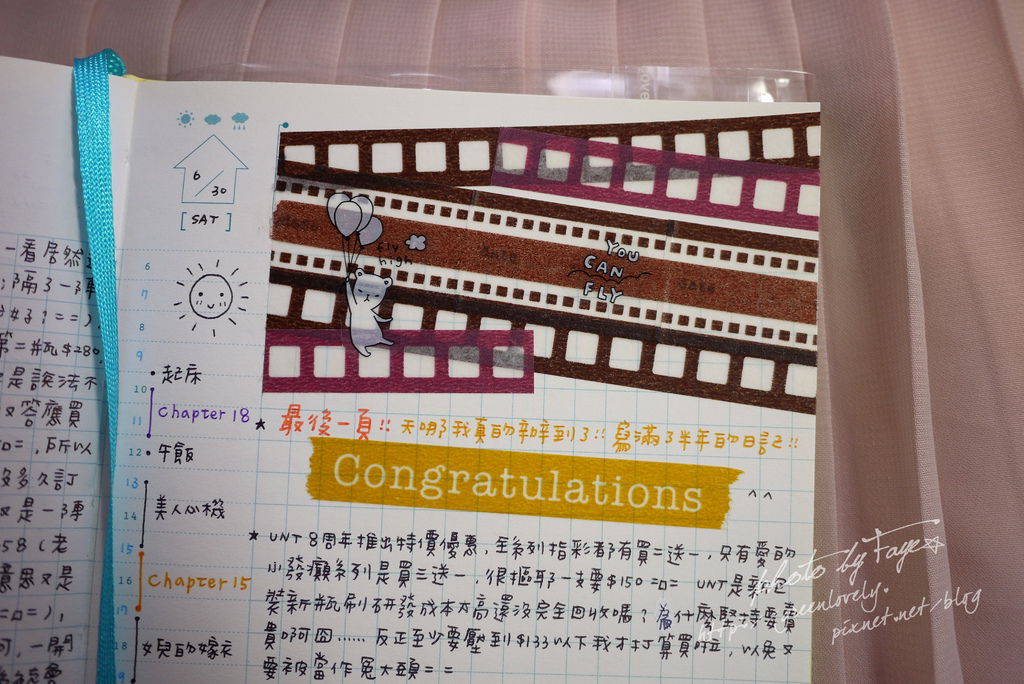 6/30
[SAT]
fly high
YOU
CAN
FLY
6
7
8
9
• 起床
10
Chapter 18
11
12 • 午飯
13
美人心機
14
15
Chapter 15
16
17
18 女兒的嫁衣
★ 最後一頁!! 天哪我真的辦到了!! 寫滿了半年的日記!!
Congratulations ^^
★ UNT 8周年推出特價優惠,全系列指彩都有買二送一,只有愛的
小發癲系列是買三送一,很摳耶一支要$150 =口= UNT是新包
裝新瓶刷研發成本太高還沒完全回收嗎?為什麼堅持要賣
貴啊囧......反正至少要壓到$133以下我才打算買啦,以免又
要被當作冤大頭= =
一看居然
隔了一陣
好了?==)
第二瓶$280
是說法不
又答應買
=口=,所以
沒多久訂
又是一陣
58(老
意思又是
=口=),
可,一開
photo by Faye☆
pixnet.net/blog